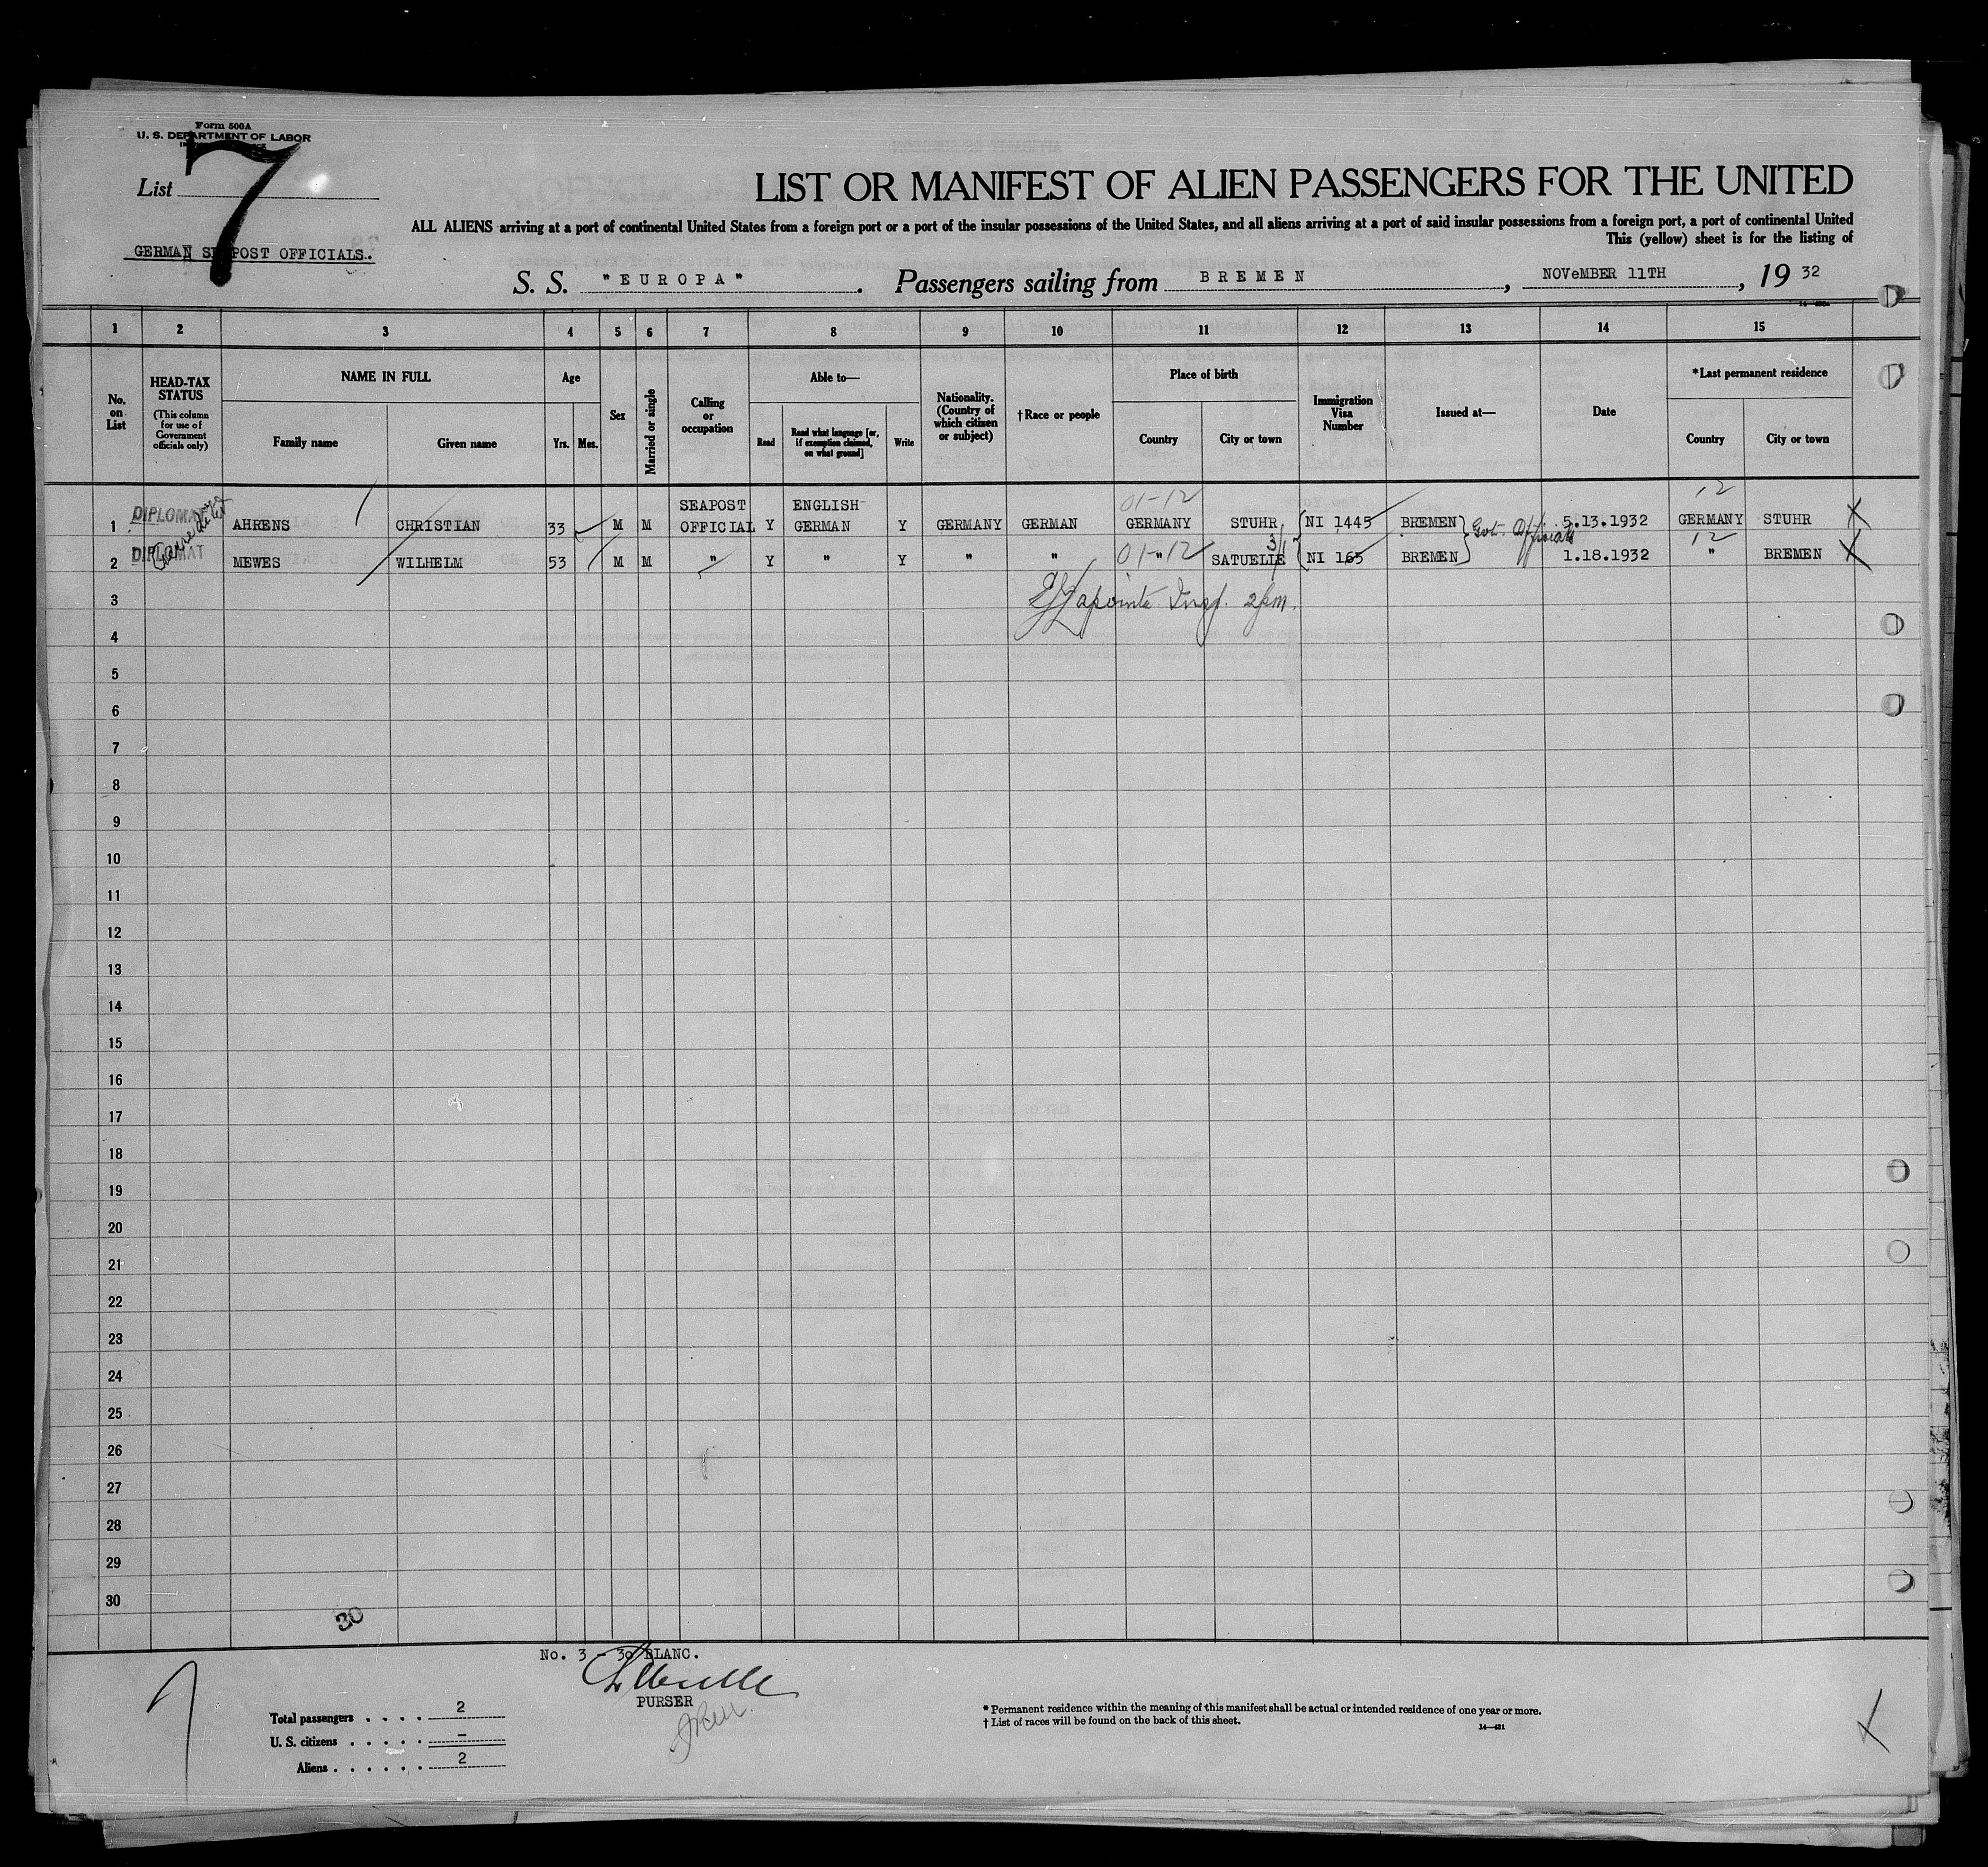 Form 500A
U. S. DEPARTMENT OF LABOR
List 7
GERMAN SEAPOST OFFICIALS.
LIST OR MANIFEST OF ALIEN PASSENGERS FOR THE UNITED
ALL ALIENS arriving at a port of continental United States from a foreign port or a port of the insular possessions of the United States, and all aliens arriving at a port of said insular possessions from a foreign port, a port of continental United
This (yellow) sheet is for the listing of
S. S. "EUROPA" . Passengers sailing from BREMEN , NOVeMBER 11TH , 19 32
1 2 3 4 5 6 7 8 9 10 11 12 13 14 15
No. on List
HEAD-TAX STATUS
(This column for use of Government officials only)
NAME IN FULL
Family name
Given name
Age
Yrs.
Mos.
Sex
Married or single
Calling or occupation
Able to—
Read
Read what language [or, if exemption claimed, on what ground]
Write
Nationality. (Country of which citizen or subject)
† Race or people
Place of birth
Country
City or town
Immigration Visa Number
Issued at—
Date
*Last permanent residence
Country
City or town
SEAPOST ENGLISH 01-12 12
1 DIPLOMAT AHRENS CHRISTIAN 33 M M OFFICIAL Y GERMAN Y GERMANY GERMAN GERMANY STUHR NI 1445 BREMEN Gov. Officials 5.13.1932 GERMANY STUHR X
01-12 3/ 12
2 DIPLOMAT MEWES WILHELM 53 M M " Y " Y " " " SATUELLE NI 165 BREMEN 1.18.1932 " BREMEN X
3
4
5
6
7
8
9
10
11
12
13
14
15
16
17
18
19
20
21
22
23
24
25
26
27
28
29
30
30
No. 3 - 30 BLANC.
PURSER
Total passengers . . . . 2
U. S. citizens . . . . . –
Aliens . . . . . . 2
* Permanent residence within the meaning of this manifest shall be actual or intended residence of one year or more.
† List of races will be found on the back of this sheet.
14—421